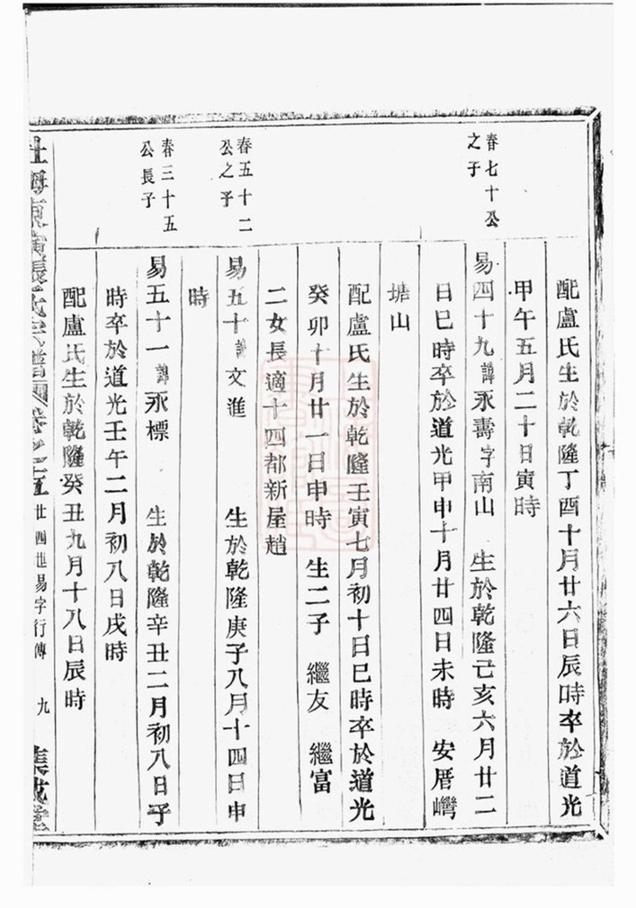 配盧氏生於乾隆丁酉十月廿六日辰時卒於道光
甲午五月二十日寅時
春七十公
之子
易四十九諱永壽字南山 生於乾隆己亥六月廿二
日巳時卒於道光甲申十月廿四日未時 安厝㘭
塘山
配盧氏生於乾隆壬寅七月初十日巳時卒於道光
癸卯十月廿一日申時 生二子 繼友 繼富
二女長適十四都新屋趙
春五十二
公之子
易五十諱文進 生於乾隆庚子八月十四日申
時
春三十五
公長子
易五十一諱永標 生於乾隆辛丑二月初八日子
時卒於道光壬午二月初八日戌時
配盧氏生於乾隆癸丑九月十八日辰時
張氏宗譜 卷之五 廿四世易字行傳 九 集成堂